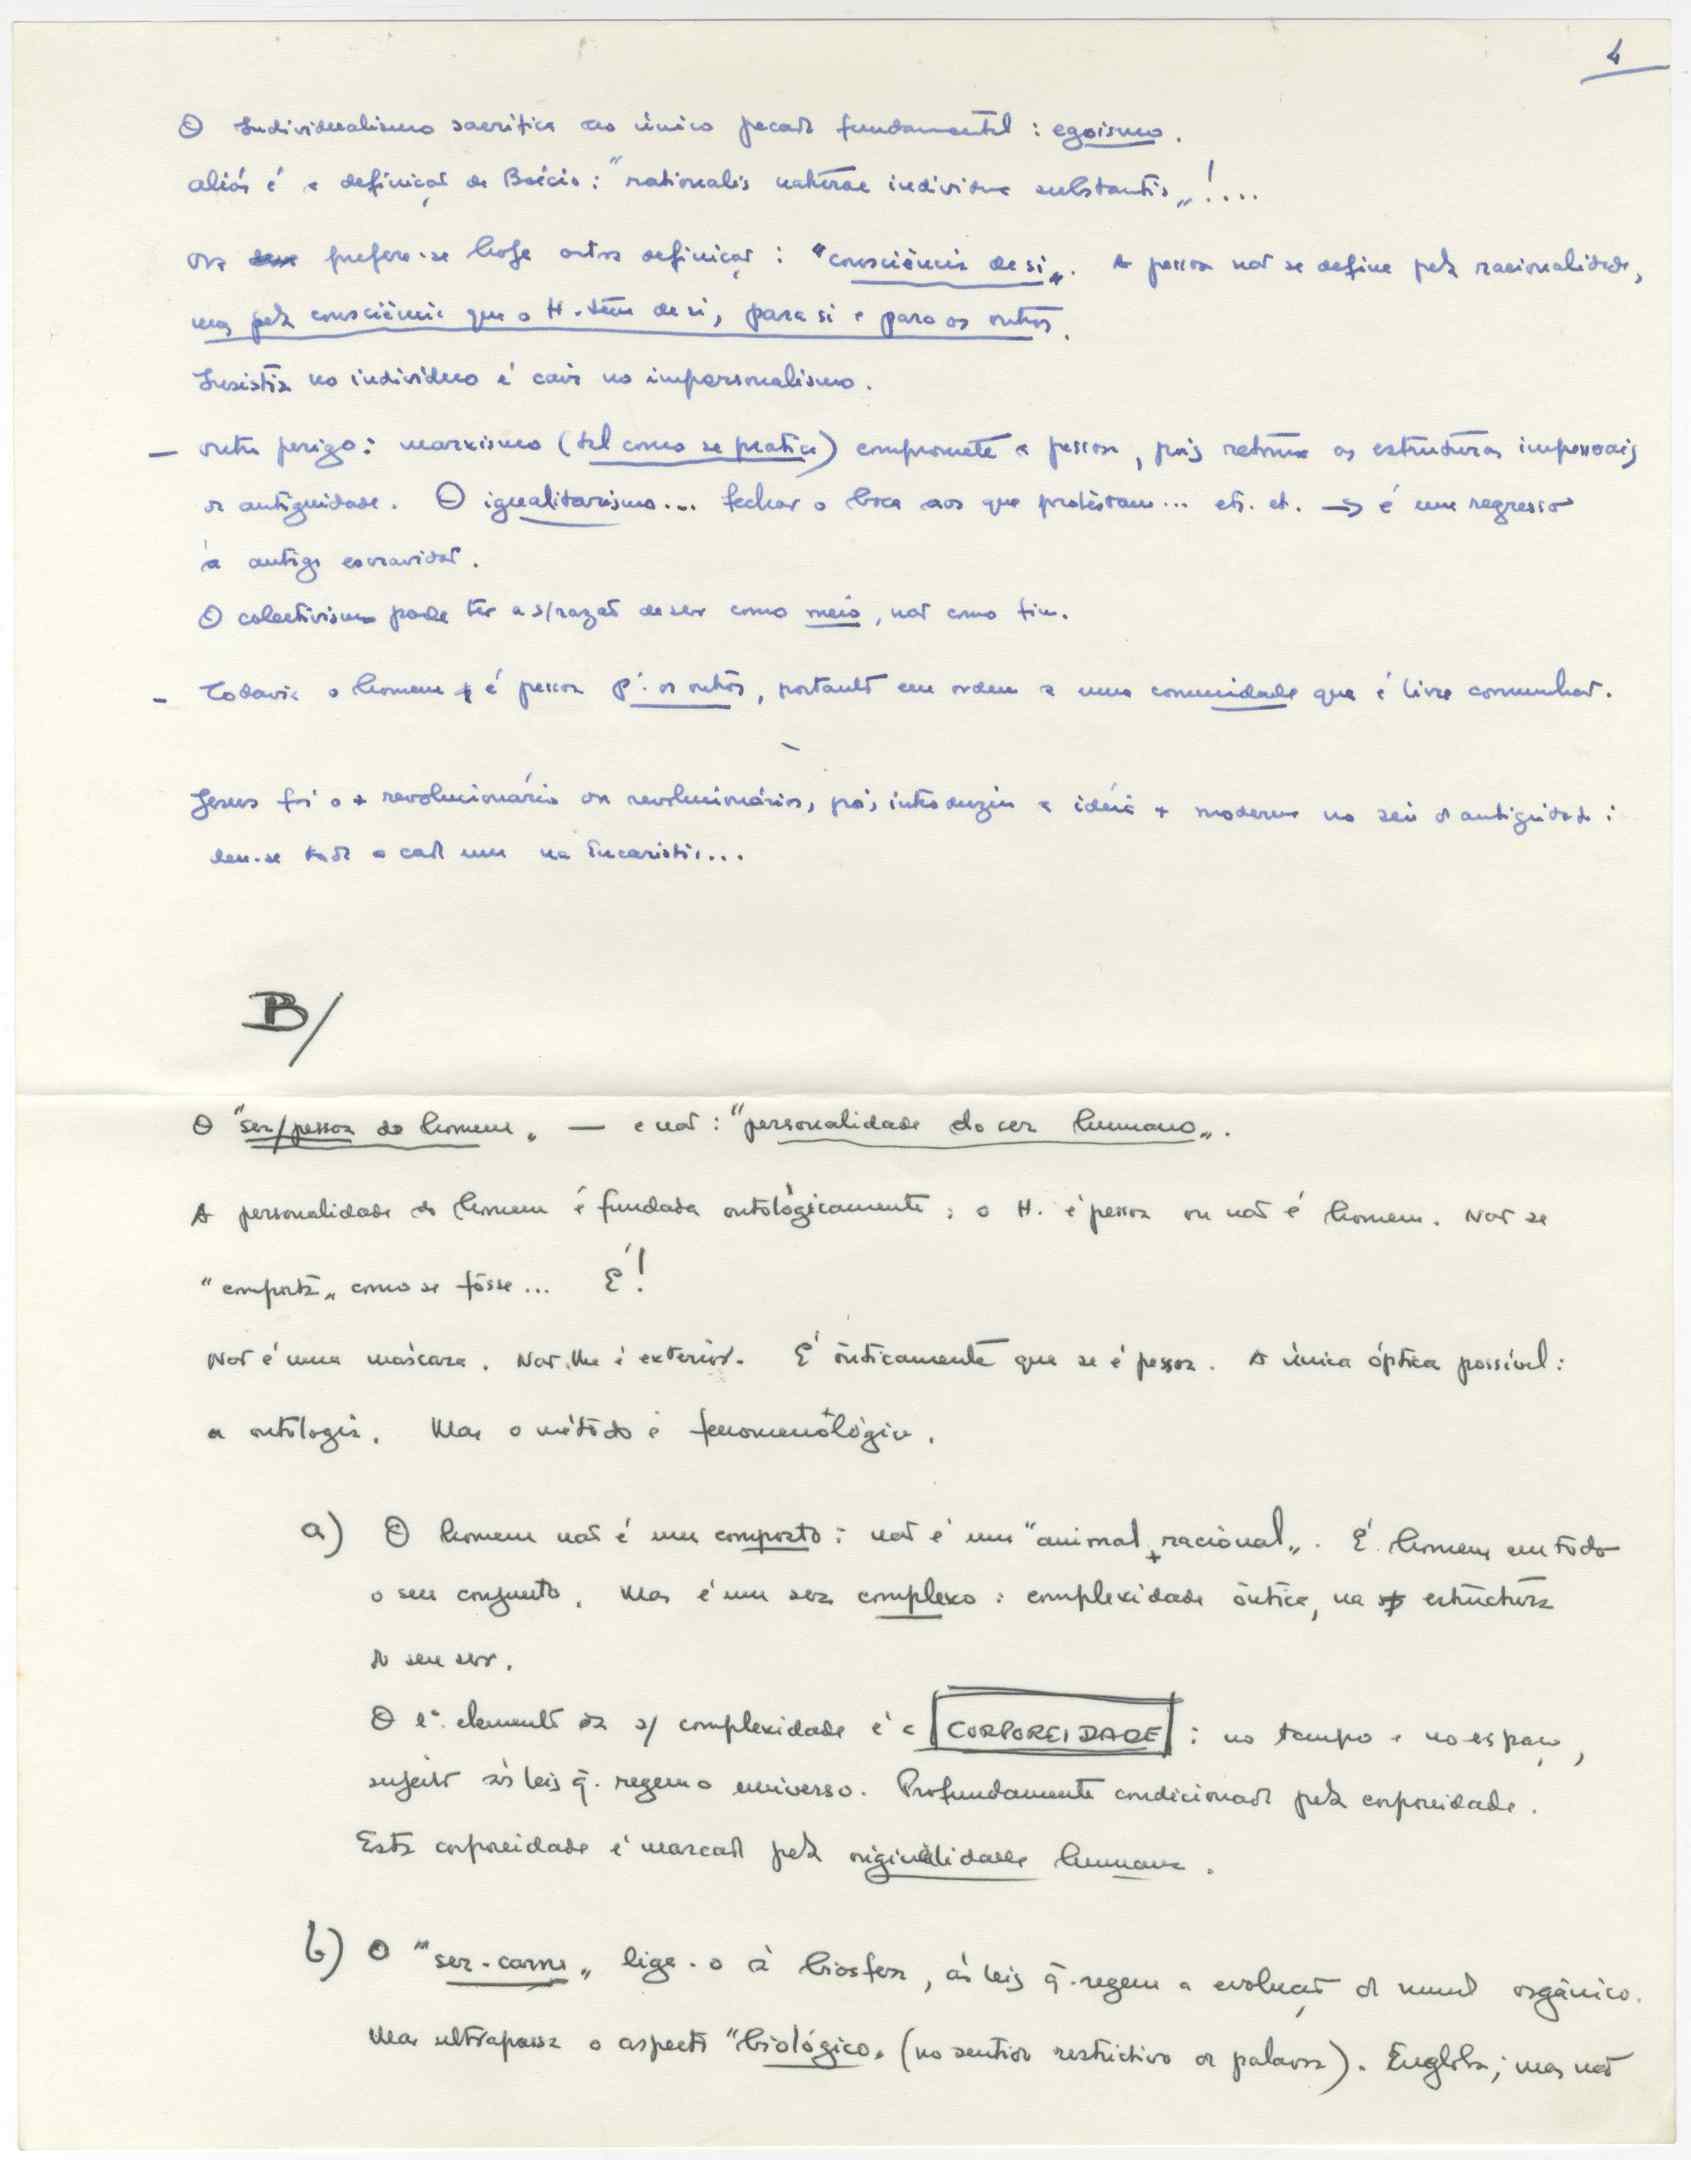 4
O Individualismo sacrifica ao único pecado fundamental : egoismo.
aliás é a definição de Boécio : "rationalis naturae individua substantia„!...
Ora prefere-se hoje outra definição : "consciência de si„. A pessoa não se define pela racionalidade,
mas pela consciência que o H. tem de si, para si e para os outros.
Insistir no indivíduo é cair no impersonalismo.
— outro perigo : marxismo (tal como se pratica) compromete a pessoa, pois retoma as estruturas impessoais
da antiguidade. O igualitarismo... fechar a boca aos que protestam... etc. etc. → é um regresso
à antiga escravidão.
O colectivismo pode ter a s/razão de ser como meio, não como fim.
- Todavia o homem é pessoa p.ª os outros, portanto em ordem a uma comunidade que é livre comunhão.
Jesus foi o + revolucionário dos revolucionários, pois introduziu a idéia + moderna no seio da antiguidade :
deu-se todo a cada um na Eucaristia...
B/
O "ser/pessoa do homem„ — e não : "personalidade do ser humano„.
A personalidade do homem é fundada ontològicamente ; o H. é pessoa ou não é homem. Não se
"comporta„ como se fôsse... É!
Não é uma máscara. Não lhe é exterior. É ônticamente que se é pessoa. A única óptica possível :
a ontologia. Mas o método é fenomenológico.
a) O homem não é um composto : não é um "animal + racional„. É homem em todo
o seu conjunto. Mas é um ser complexo : complexidade ôntica, na estructura
do seu ser.
O 1º. elemento da s/ complexidade é a CORPOREIDADE : no tempo e no espaço,
sujeito às leis q. regem o universo. Profundamente condicionado pela corporeidade.
Esta corporeidade é marcada pela originalidade humana.
b) O "ser-carne„ liga-o à biosfera, às leis q. regem a evolução do mundo orgânico.
Mas ultrapassa o aspecto "biológico„ (no sentido restrictivo da palavra). Engloba ; mas não